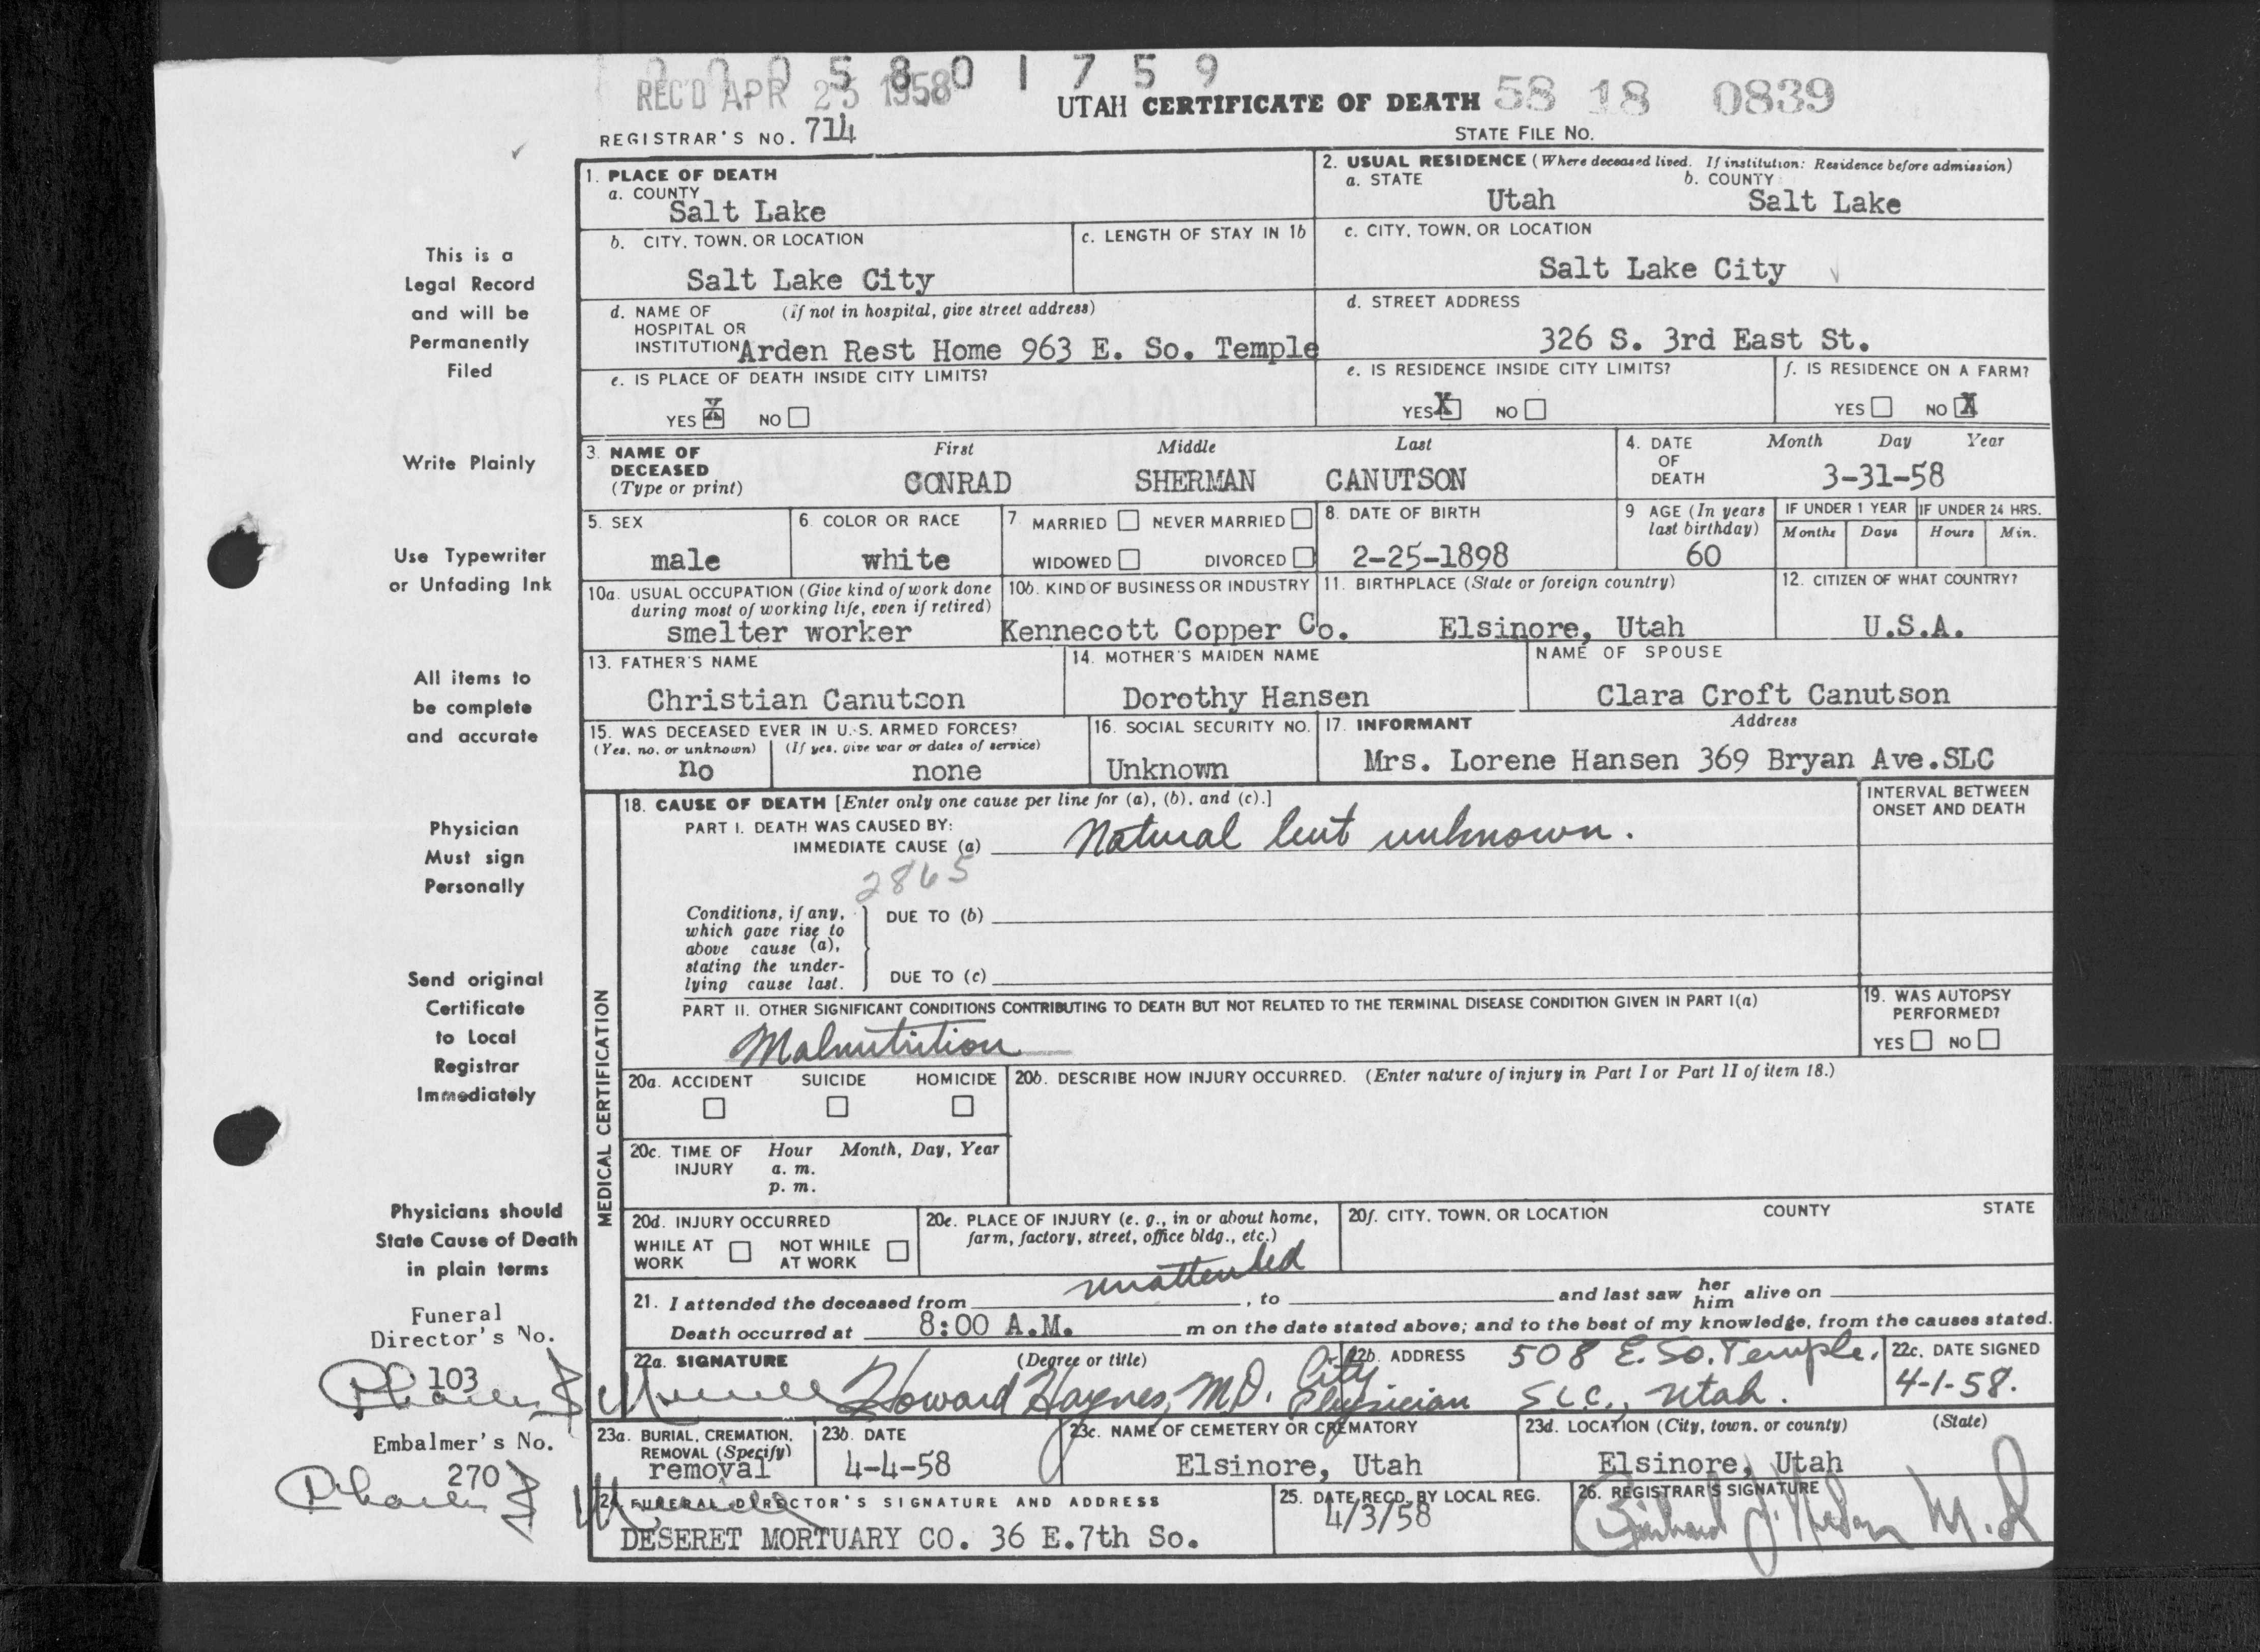 0 0 0 5 8 0 1 7 5 9
REC'D APR 25 1958
UTAH CERTIFICATE OF DEATH 58 18 0839
REGISTRAR'S NO. 714
STATE FILE NO.
1. PLACE OF DEATH
a. COUNTY
Salt Lake
2. USUAL RESIDENCE (Where deceased lived. If institution: Residence before admission)
a. STATE b. COUNTY
Utah Salt Lake
b. CITY, TOWN, OR LOCATION
Salt Lake City
c. LENGTH OF STAY IN 1b
c. CITY, TOWN, OR LOCATION
Salt Lake City
d. NAME OF (If not in hospital, give street address)
HOSPITAL OR
INSTITUTION Arden Rest Home 963 E. So. Temple
d. STREET ADDRESS
326 S. 3rd East St.
e. IS PLACE OF DEATH INSIDE CITY LIMITS?
YES X NO
e. IS RESIDENCE INSIDE CITY LIMITS?
YES X NO
f. IS RESIDENCE ON A FARM?
YES NO X
3. NAME OF
DECEASED
(Type or print)
First Middle Last
CONRAD SHERMAN CANUTSON
4. DATE
OF
DEATH
Month Day Year
3-31-58
5. SEX
male
6. COLOR OR RACE
white
7. MARRIED NEVER MARRIED
WIDOWED DIVORCED
8. DATE OF BIRTH
2-25-1898
9 AGE (In years
last birthday)
60
IF UNDER 1 YEAR
Months Days
IF UNDER 24 HRS.
Hours Min.
10a. USUAL OCCUPATION (Give kind of work done
during most of working life, even if retired)
smelter worker
10b. KIND OF BUSINESS OR INDUSTRY
Kennecott Copper Co.
11. BIRTHPLACE (State or foreign country)
Elsinore, Utah
12. CITIZEN OF WHAT COUNTRY?
U.S.A.
13. FATHER'S NAME
Christian Canutson
14. MOTHER'S MAIDEN NAME
Dorothy Hansen
NAME OF SPOUSE
Clara Croft Canutson
15. WAS DECEASED EVER IN U.S. ARMED FORCES?
(Yes, no, or unknown) (If yes, give war or dates of service)
no none
16. SOCIAL SECURITY NO.
Unknown
17. INFORMANT Address
Mrs. Lorene Hansen 369 Bryan Ave.SLC
MEDICAL CERTIFICATION
18. CAUSE OF DEATH [Enter only one cause per line for (a), (b), and (c).]
PART I. DEATH WAS CAUSED BY:
IMMEDIATE CAUSE (a) Natural but unknown.
2865
INTERVAL BETWEEN
ONSET AND DEATH
Conditions, if any,
which gave rise to
above cause (a),
stating the under-
lying cause last.
DUE TO (b)
DUE TO (c)
PART II. OTHER SIGNIFICANT CONDITIONS CONTRIBUTING TO DEATH BUT NOT RELATED TO THE TERMINAL DISEASE CONDITION GIVEN IN PART I(a)
Malnutrition
19. WAS AUTOPSY
PERFORMED?
YES NO
20a. ACCIDENT SUICIDE HOMICIDE
20b. DESCRIBE HOW INJURY OCCURRED. (Enter nature of injury in Part I or Part II of item 18.)
20c. TIME OF Hour Month, Day, Year
INJURY a. m.
p. m.
20d. INJURY OCCURRED
WHILE AT NOT WHILE
WORK AT WORK
20e. PLACE OF INJURY (e. g., in or about home,
farm, factory, street, office bldg., etc.)
20f. CITY, TOWN, OR LOCATION COUNTY STATE
unattended
21. I attended the deceased from , to and last saw her him alive on
Death occurred at 8:00 A.M. m on the date stated above; and to the best of my knowledge, from the causes stated.
22a. SIGNATURE (Degree or title)
Howard Haynes, M.D. City Physician
22b. ADDRESS 508 E. So. Temple,
SLC., Utah.
22c. DATE SIGNED
4-1-58.
23a. BURIAL, CREMATION,
REMOVAL (Specify)
removal
23b. DATE
4-4-58
23c. NAME OF CEMETERY OR CREMATORY
Elsinore, Utah
23d. LOCATION (City, town, or county) (State)
Elsinore, Utah
24. FUNERAL DIRECTOR'S SIGNATURE AND ADDRESS
DESERET MORTUARY CO. 36 E.7th So.
25. DATE RECD. BY LOCAL REG.
4/3/58
26. REGISTRAR'S SIGNATURE
M.D
This is a
Legal Record
and will be
Permanently
Filed
Write Plainly
Use Typewriter
or Unfading Ink
All items to
be complete
and accurate
Physician
Must sign
Personally
Send original
Certificate
to Local
Registrar
Immediately
Physicians should
State Cause of Death
in plain terms
Funeral
Director's No.
103
Embalmer's No.
270